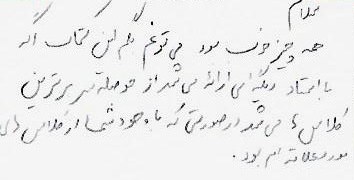 سلام
همه چیز خوب بود می‌تونم بگم این کلاس اگه
با استاد دیگه‌ای ارائه می‌شد از حوصله سر برترین
کلاس‌ها می‌شد در صورتی که با وجود شما از کلاس‌های
مورد علاقه‌ام بود.